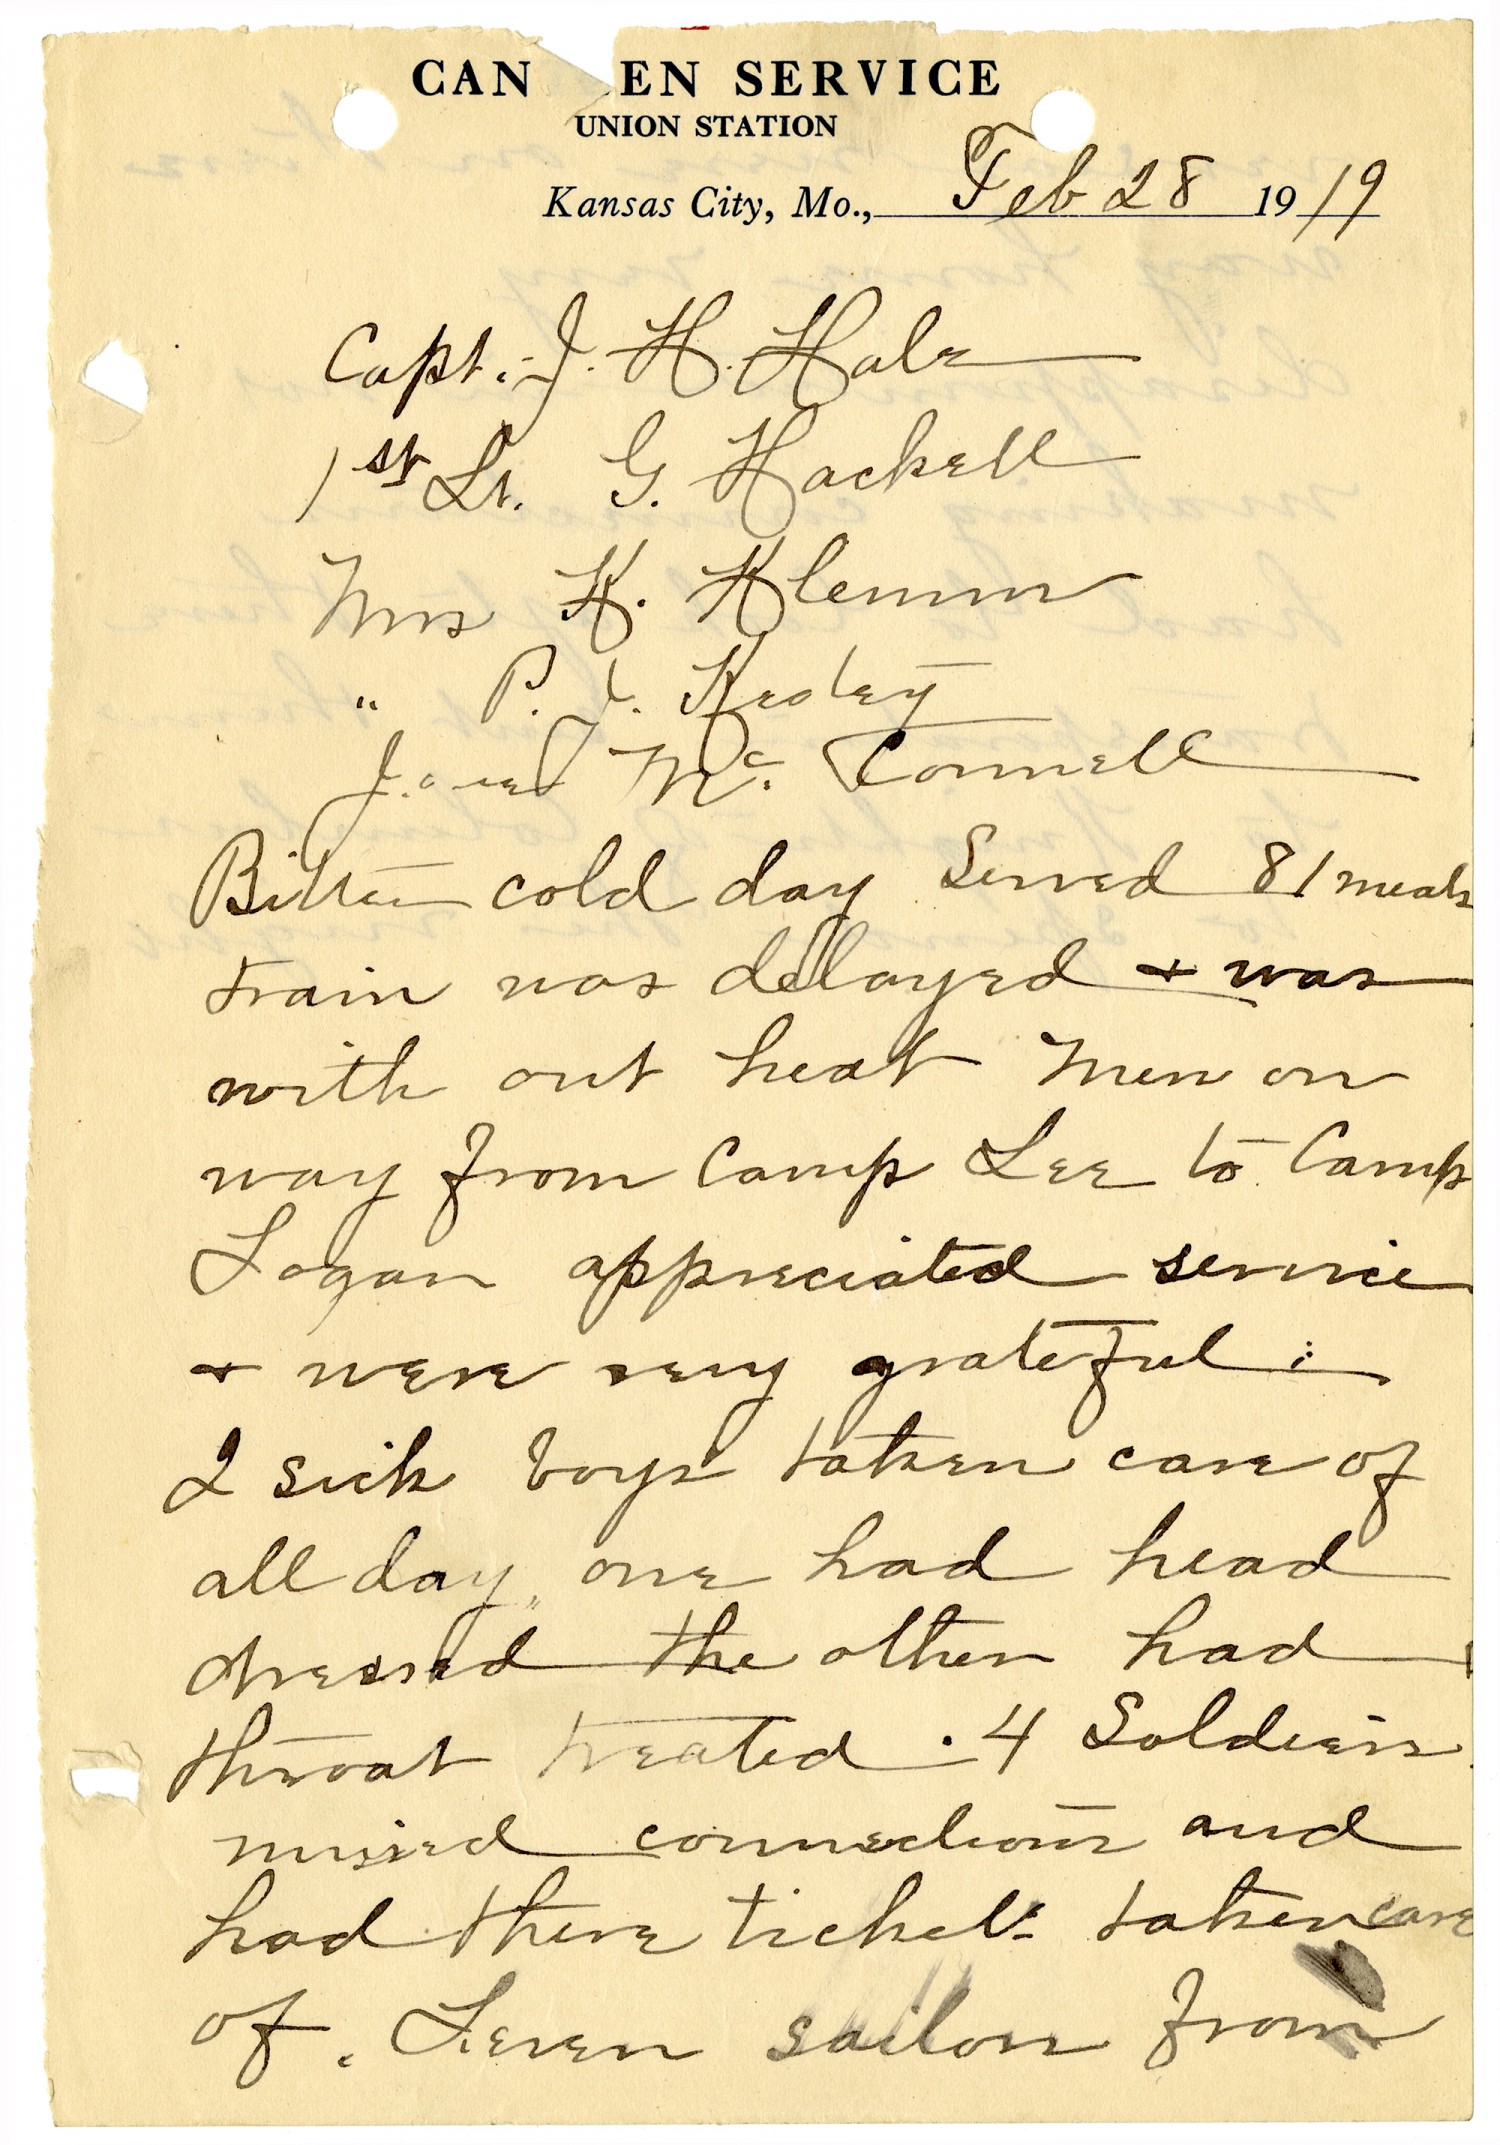 CAN EN SERVICE
UNION STATION
Kansas City, Mo., Feb 28 1919
Capt. J. H. Hale
1st Lt. G. Hackell
Mrs K. Klemm
" P. J. Kesley
Mc. Connell
Bitter cold day Served 81 meals
train was delayed + was
with out heat Men on
way from Camp Lee to Camp
Logan appreciated service
+ were very grateful :
2 sick boys taken care of
all day, one had head
dressed the other had
throat treated . 4 Soldiers
missed connections and
had there tickets taken care
of . Seven sailors from